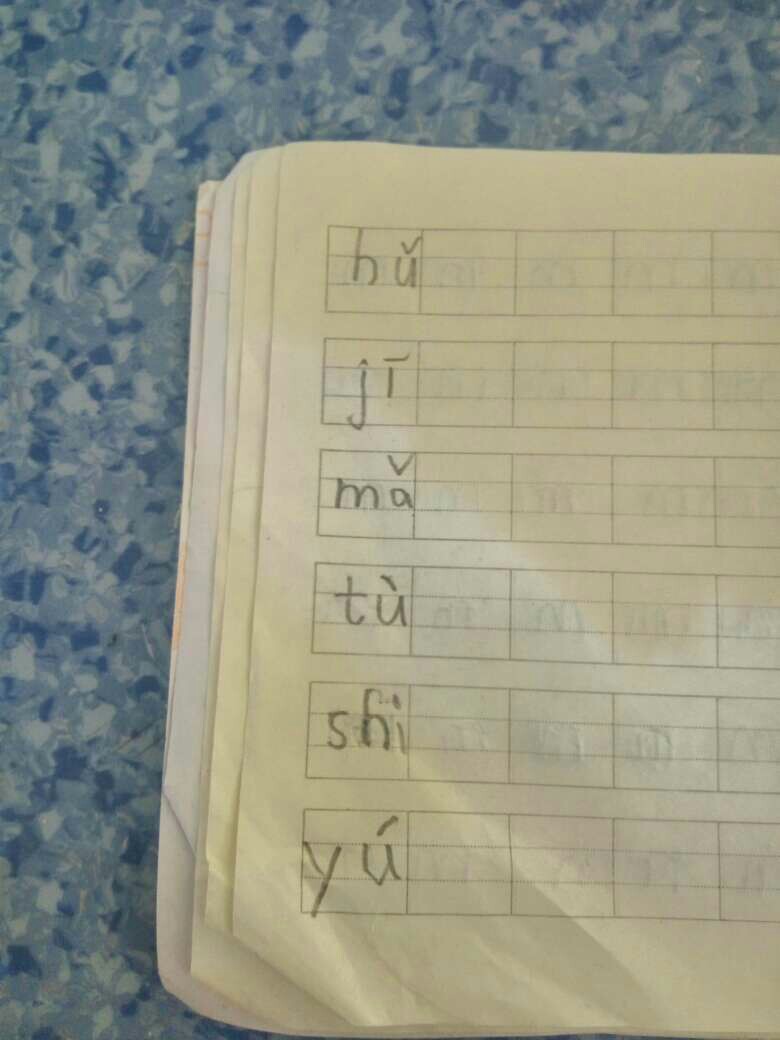 hǔ
jī
mǎ
tù
shi
yú